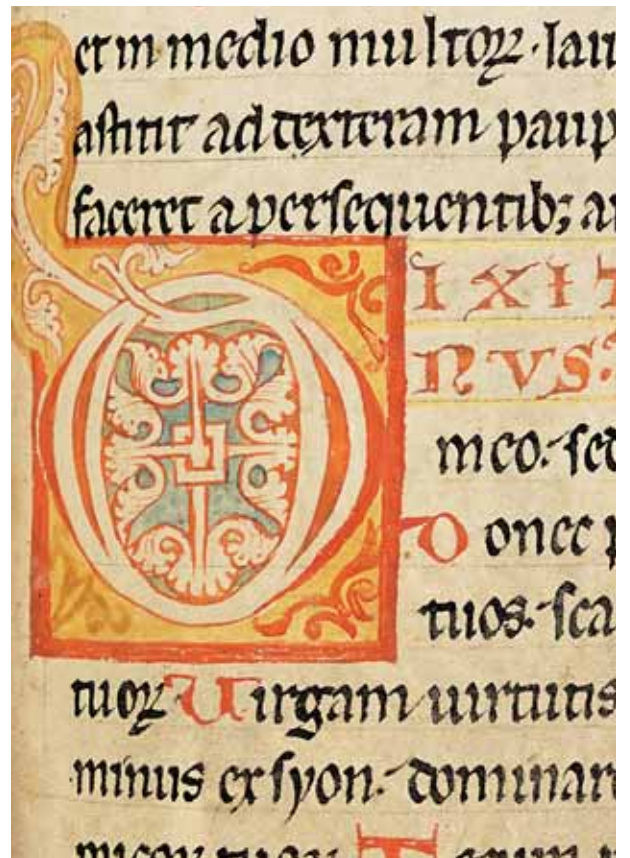 et in medio multoꝝ · lau
astitit ad dexteram paup
faceret a persequentib; an
DIXIT
NVS:
meo. sed
Donec p
tuos. sca
tuoꝝ Uirgam uirtutis
minus ex syon. dominare
Tecum